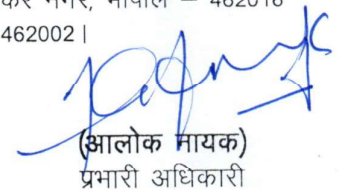 नगर, भोपाल – 462016
462002 |
(आलोक नायक)
प्रभारी अधिकारी